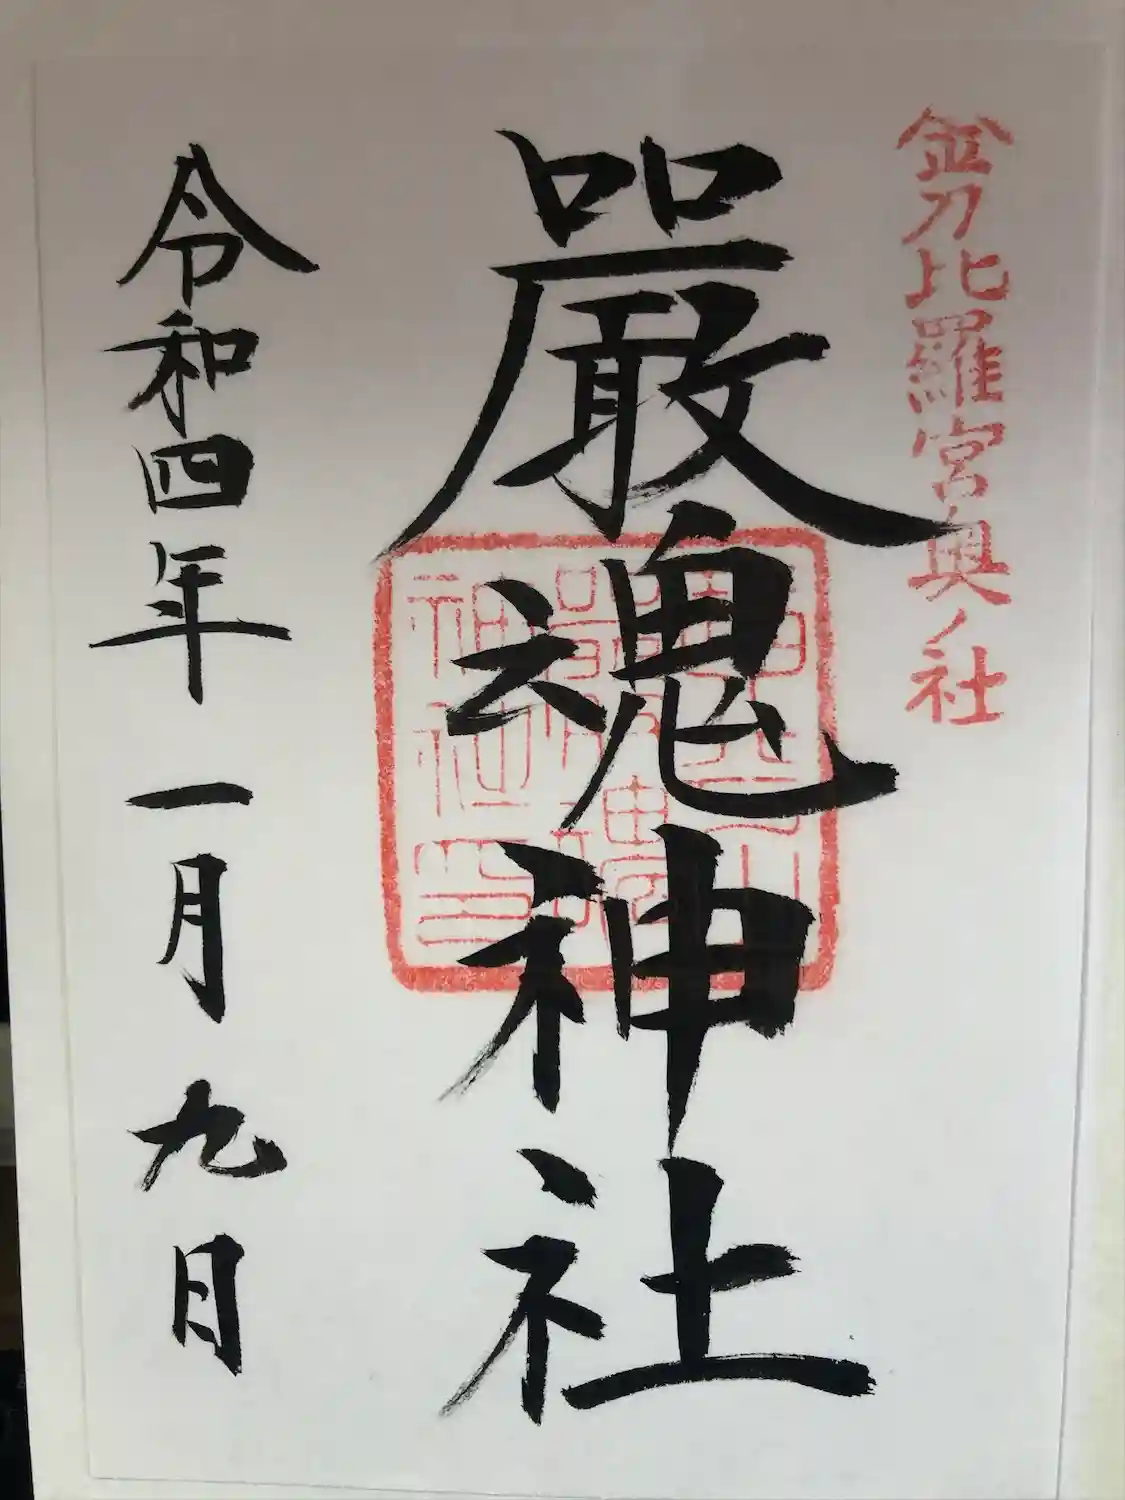 金刀比羅宮奥ノ社
嚴魂神社
令和四年一月九日